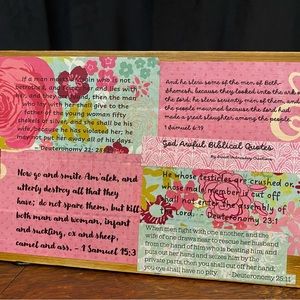 If a man meets a virgin who is not
betrothed, and seizes her and lies with
her, and they are found, then the man
who lay with her shall give to the
father of the young woman fifty
shekels of silver, and she shall be his
wife, because he has violated her; he
may not put her away all his days
Deuteronomy 22: 28
And he slew some of the men of Beth-
shemesh, because they looked into the ark of
the lord; he slew seventy men of them, and
the people mourned because the lord had
made a great slaughter among the people.
1 Samuel 6:19
God Awful Biblical Quotes
Now go and smite Am'alek, and
utterly destroy all that they
have; do not spare them, but kill
both man and woman, infant
and suckling, ox and sheep,
camel and ass. - 1 Samuel 15:3
He whose testicles are crushed or
whose male member is cut off
shall not enter the assembly of
the Lord. Deuteronomy 23:1
When men fight with one another, and the
wife of one draws near to rescue her husband
from the hand of him who is beating him, and
puts out her hand and seizes him by the
private parts, then you shall cut off her hand;
your eye shall have no pity. -Deuteronomy 25:11